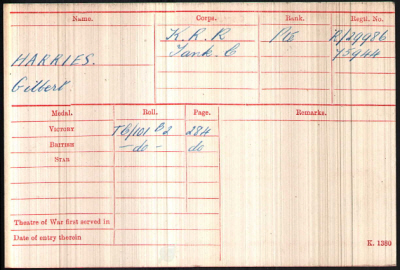 Name. Corps. Rank. Regtl. No.
HARRIES. K. R. R Pte R/29986
Gilbert Tank. C 75944
Medal. Roll. Page. Remarks.
VICTORY TC/101 B2 284
BRITISH -do- do
STAR
Theatre of War first served in
Date of entry therein
K. 1380